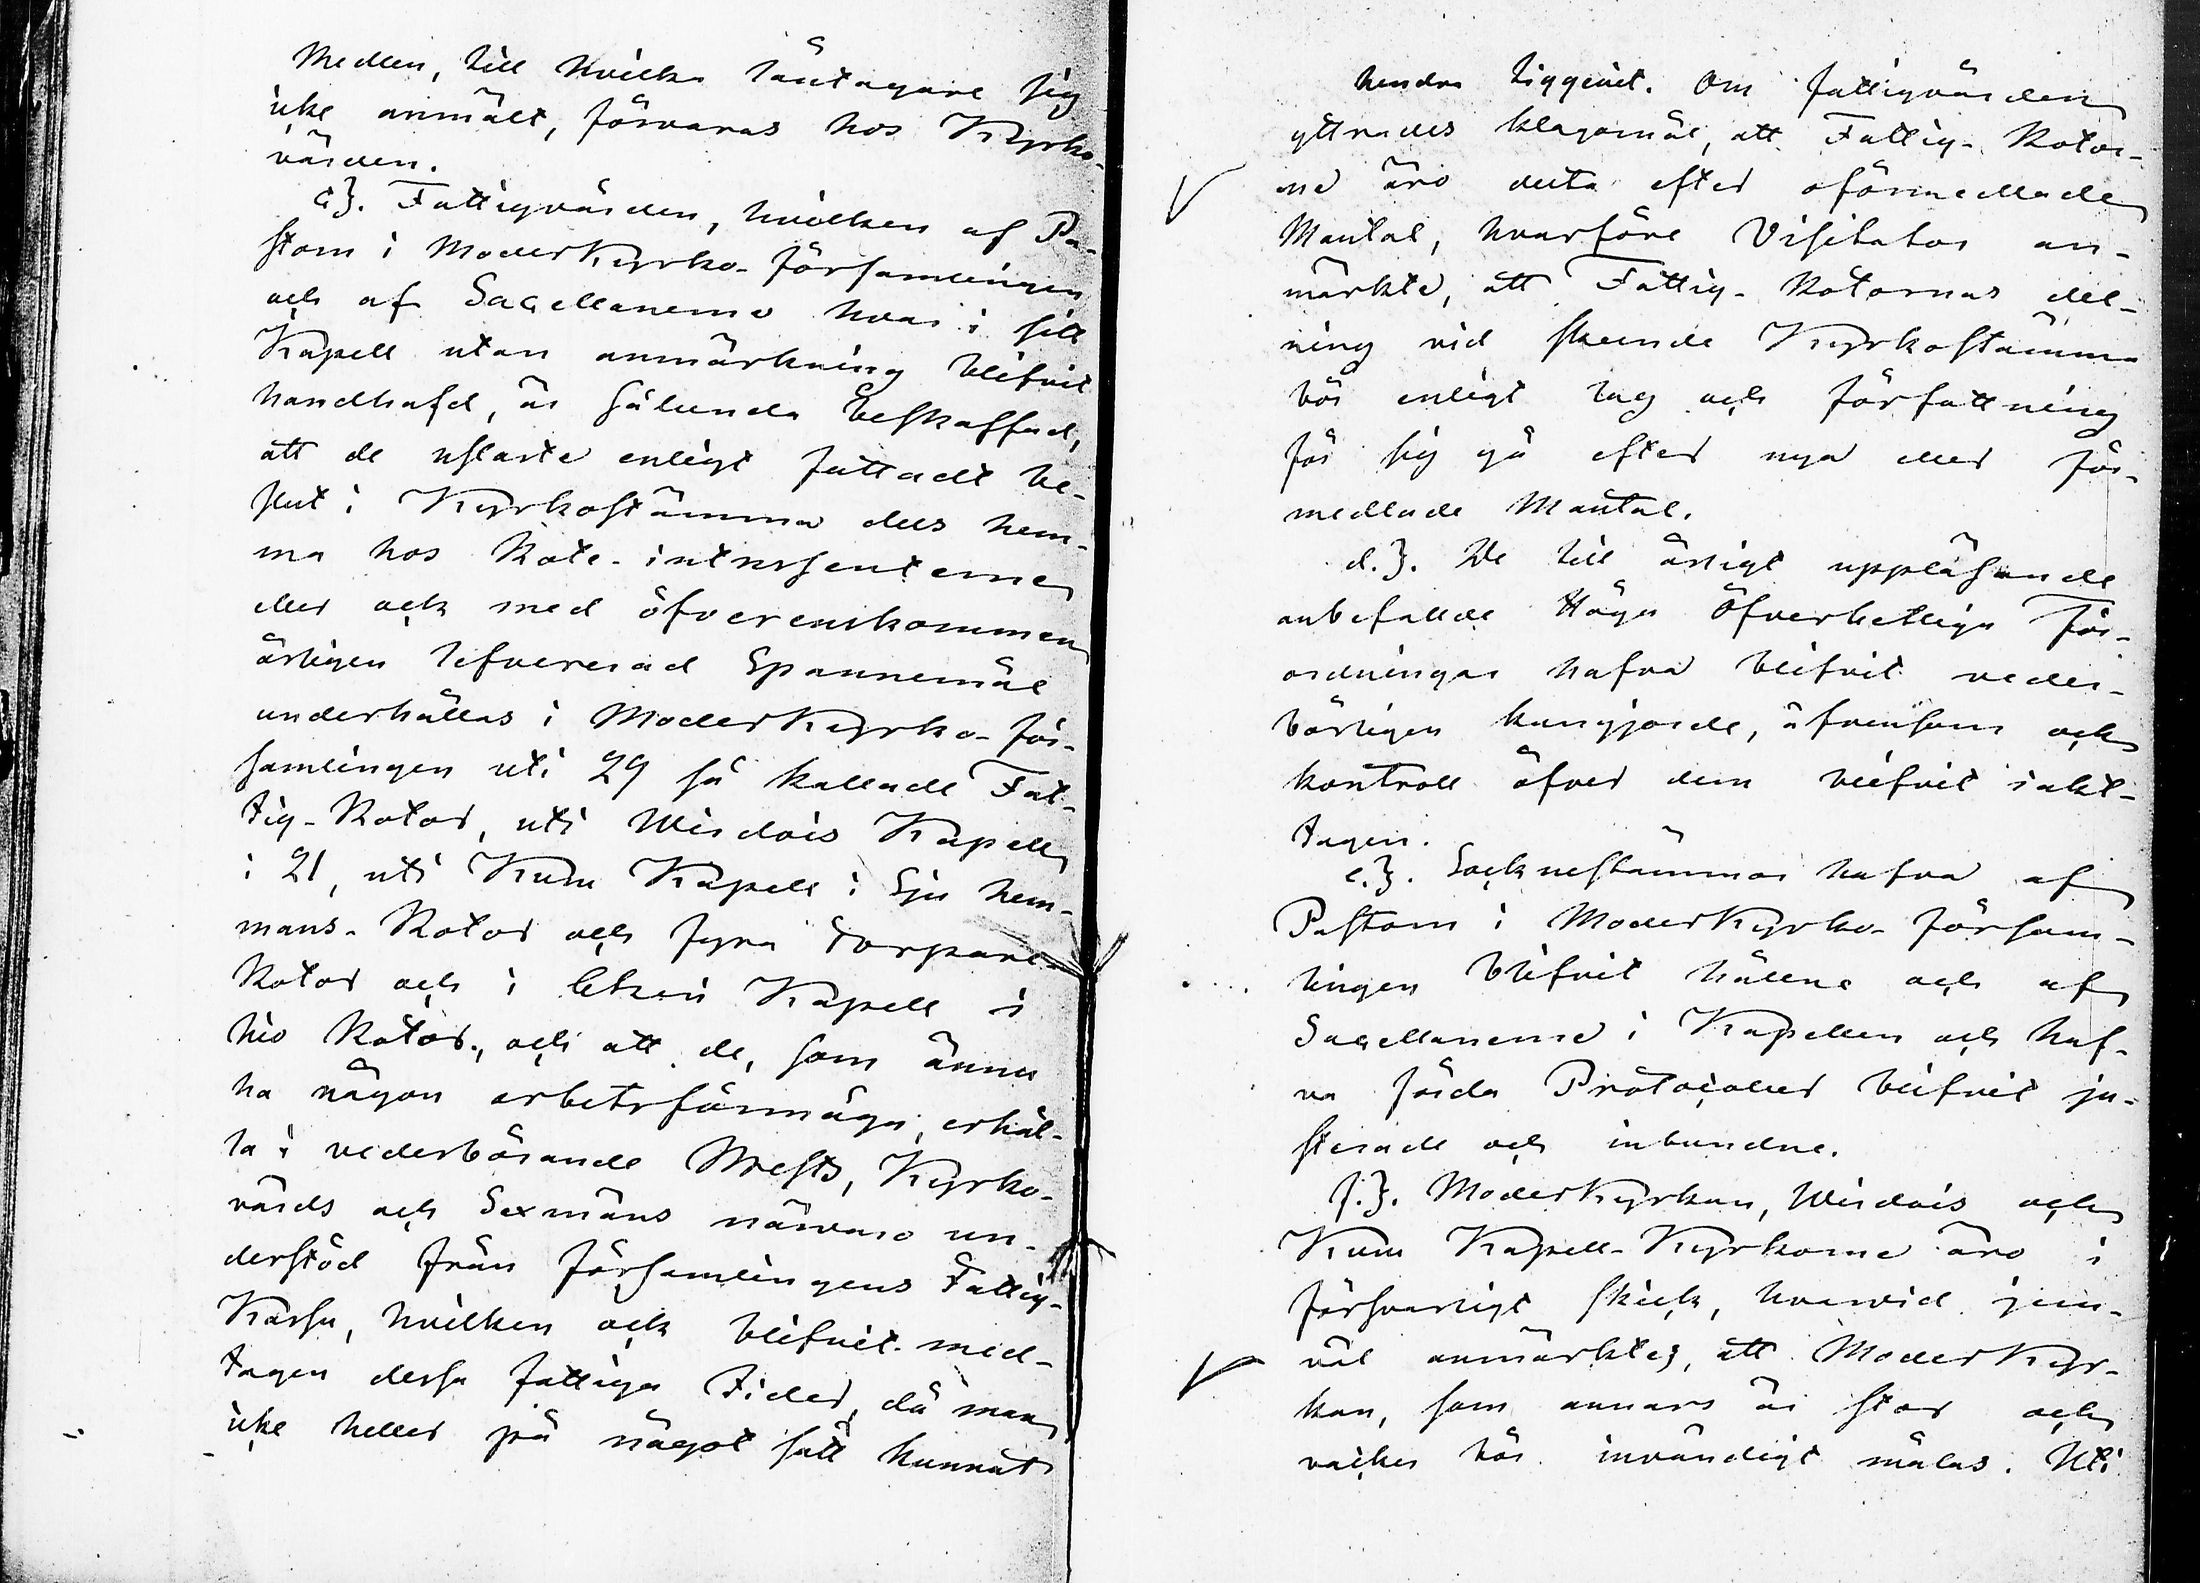 Medlen, till hvilka låntagare sig
icke anmält, förvaras hos Kyrko-
värden.
c}. Fattigvården, hvilken af Pa-
storn i ModerKyrko-församlingen
och af Sacellanerne hvar i sitt
Kapell utan anmärkning blifvit
handhafd, är sålunda beskaffad,
att de uslaste enligt fattadt be-
slut i Kyrkostämma dels hem-
ma hos Rote-intressenterne
eller ock med öfverenskommen
årligen lefvererad Spannemål
underhållas i ModerKyrko-för-
samlingen uti 29 så kallade Fat-
tig-Rotar, uti Wirdois Kapell
i 21, uti Kuru Kapell i Sju hem-
mans-Rotar och fyra Torpare-
Rotar och i Etseri Kapell i
tio Rotar, och att de, som ännu
ha någon arbetsförmåga, erhål-
la i vederbörande Prests, Kyrko-
värds och Sexmäns närvaro un-
derstöd från församlingens Fattig-
Kassa, hvilken ock blifvit med-
tagen dessa fattiga tider, då man
icke heller på något sätt kunnat
hindra tiggeriet. Om fattigvården
yttrades klagomål, att Fattig-Rotar-
ne äro delta efter oförmedlade
Mantal, hvarföre Visitator an-
märkte, att Fattig-Rotornas del-
ning vid skeende Kyrkostämma
bör enligt lag och författning
för sig gå efter nya eller för-
medlade Mantal.
d.}. De till årligt uppläsande
anbefallde Höga Öfverhetliga För-
ordningar hafva blifvit veder-
börligen kungjorde, äfvensom ock
kontroll öfver dem blifvit iakt-
tagen.
e.}. Socknestämmor hafva af
Pastorn i ModerKyrko-försam-
lingen blifvit hållne och af
Sacellanerne i Kapellen och haf-
va förda Protocoller blifvit ju-
sterade och inbundne.
f.}. ModerKyrkan, Wirdois och
Kuru Kapell-Kyrkorne äro i
försvarligt skick, hvarvid jem-
väl anmärktes, att ModerKyr-
kan, som annars är stor och
vacker bör invändigt målas. Uti